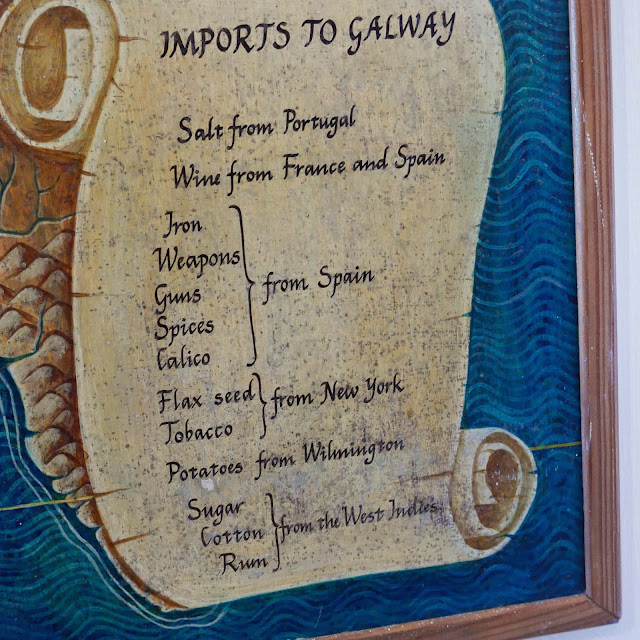 IMPORTS TO GALWAY
Salt from Portugal
Wine from France and Spain
Iron
Weapons
Guns
Spices
Calico
from Spain
Flax seed
Tobacco
from New York
Potatoes from Wilmington
Sugar
Cotton
Rum
from the West Indies